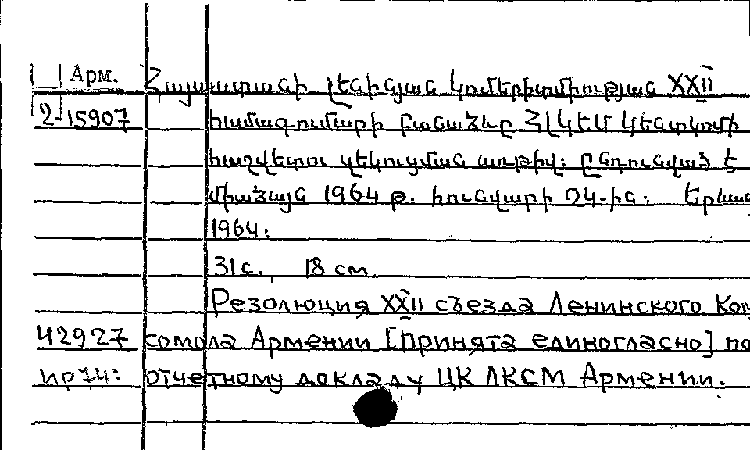 Арм. Հայաստանի լենինյան կոմերիտմիության XXII
2-15907 համագումարի բանաձևը ՀԼԿԵՄ Կենտկոմի
հաշվետու զեկուցման առթիվ: Ընդունված է
միաձայն 1964 թ. հունվարի 24-ին: Երևան
1964:
31с., 18 см.
Резолюция XXII съезда Ленинского Ком
42927 сомола Армении [принята единогласно] по
отчетному докладу ЦК ЛКСМ Армении.